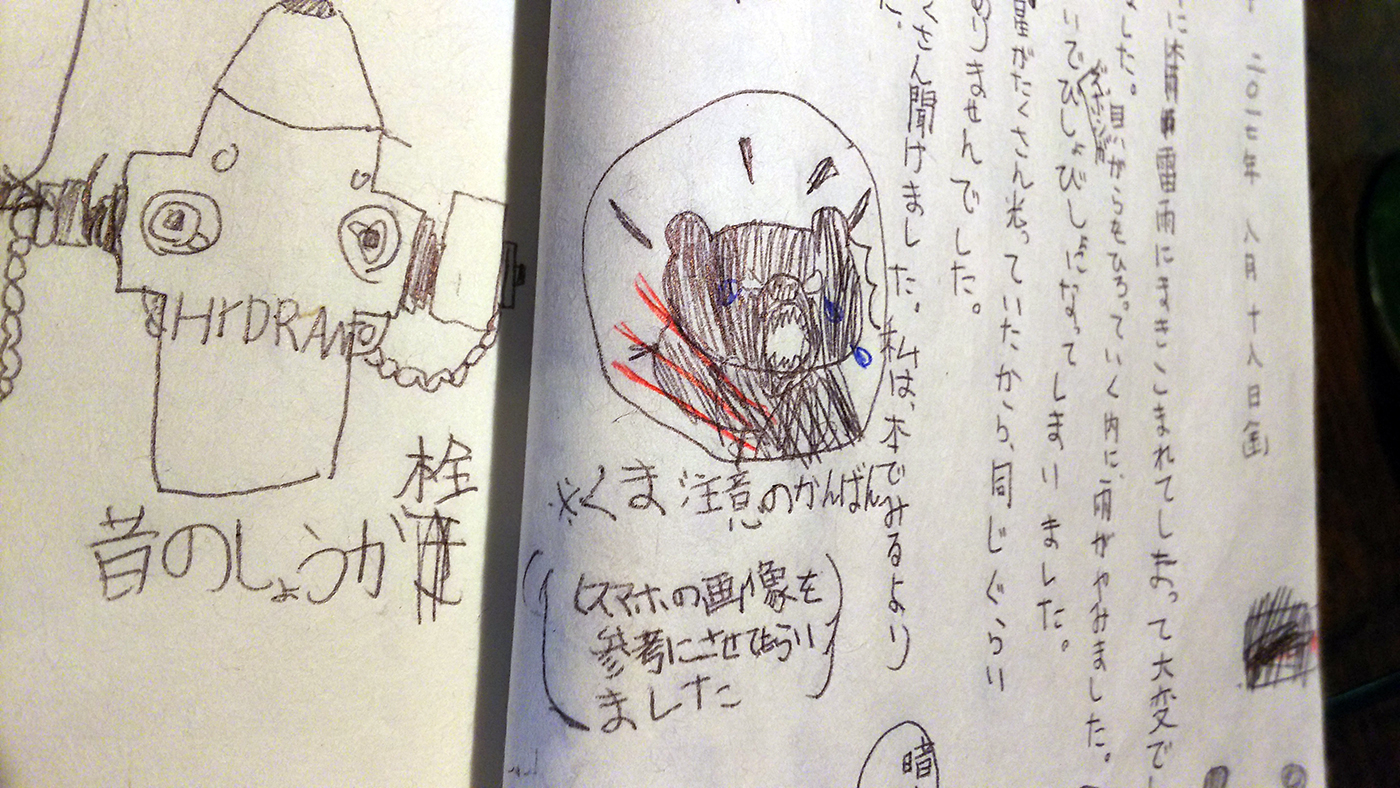 HYDRANT
昔のしょうが栓
年 八月 十八日 金
雷雨にまきこまれてしまって大変で
した。貝がらをひろっていく内に、雨がやみました。
いでびしょびしょになってしまいました。
雷がたくさん光っていたから、同じぐらい
ありませんでした。
くさん聞けました。私は、本でみるより
た。
※くま注意のかんばん
(スマホの画像を
参考にさせてもらい
ました)
暗